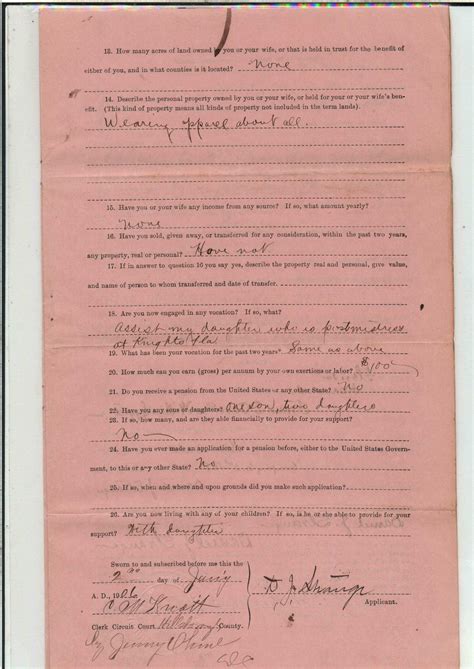 13. How many acres of land owned by you or your wife, or that is held in trust for the benefit of
either of you, and in what counties is it located? None
14. Describe the personal property owned by you or your wife, or held for your or your wife's ben-
efit. (This kind of property means all kinds of property not included in the term lands).
Wearing apparel about all.
15. Have you or your wife any income from any source? If so, what amount yearly?
None
16. Have you sold, given away, or transferred for any consideration, within the past two years,
any property, real or personal? Have not
17. If in answer to question 16 you say yes, describe the property real and personal, give value,
and name of person to whom transferred and date of transfer.
18. Are you engaged in any vocation? If so, what?
Assist my daughter who is postmistress
at Knights Fla
19. What has been your vocation for the past two years? Same as above
20. How much can you earn (gross) per annum by your own exertions or labor? $100
21. Do you receive a pension from the United States or any other State? No
22. Have you any sons or daughters? One son, two daughters
23. If so, how many, and are they able financially to provide for your support?
No
24. Have you ever made an application for a pension before, either to the United States Govern-
ment, to this or any other State? No
25. If so, when and where and upon grounds did you make such application?
26. Are you now living with any of your children? If so, is he or she able to provide for your
support? With daughter
Sworn to and subscribed before me this the
2nd day of Jany
A. D., 1906
Applicant.
Clerk Circuit Court, County.
By
DC